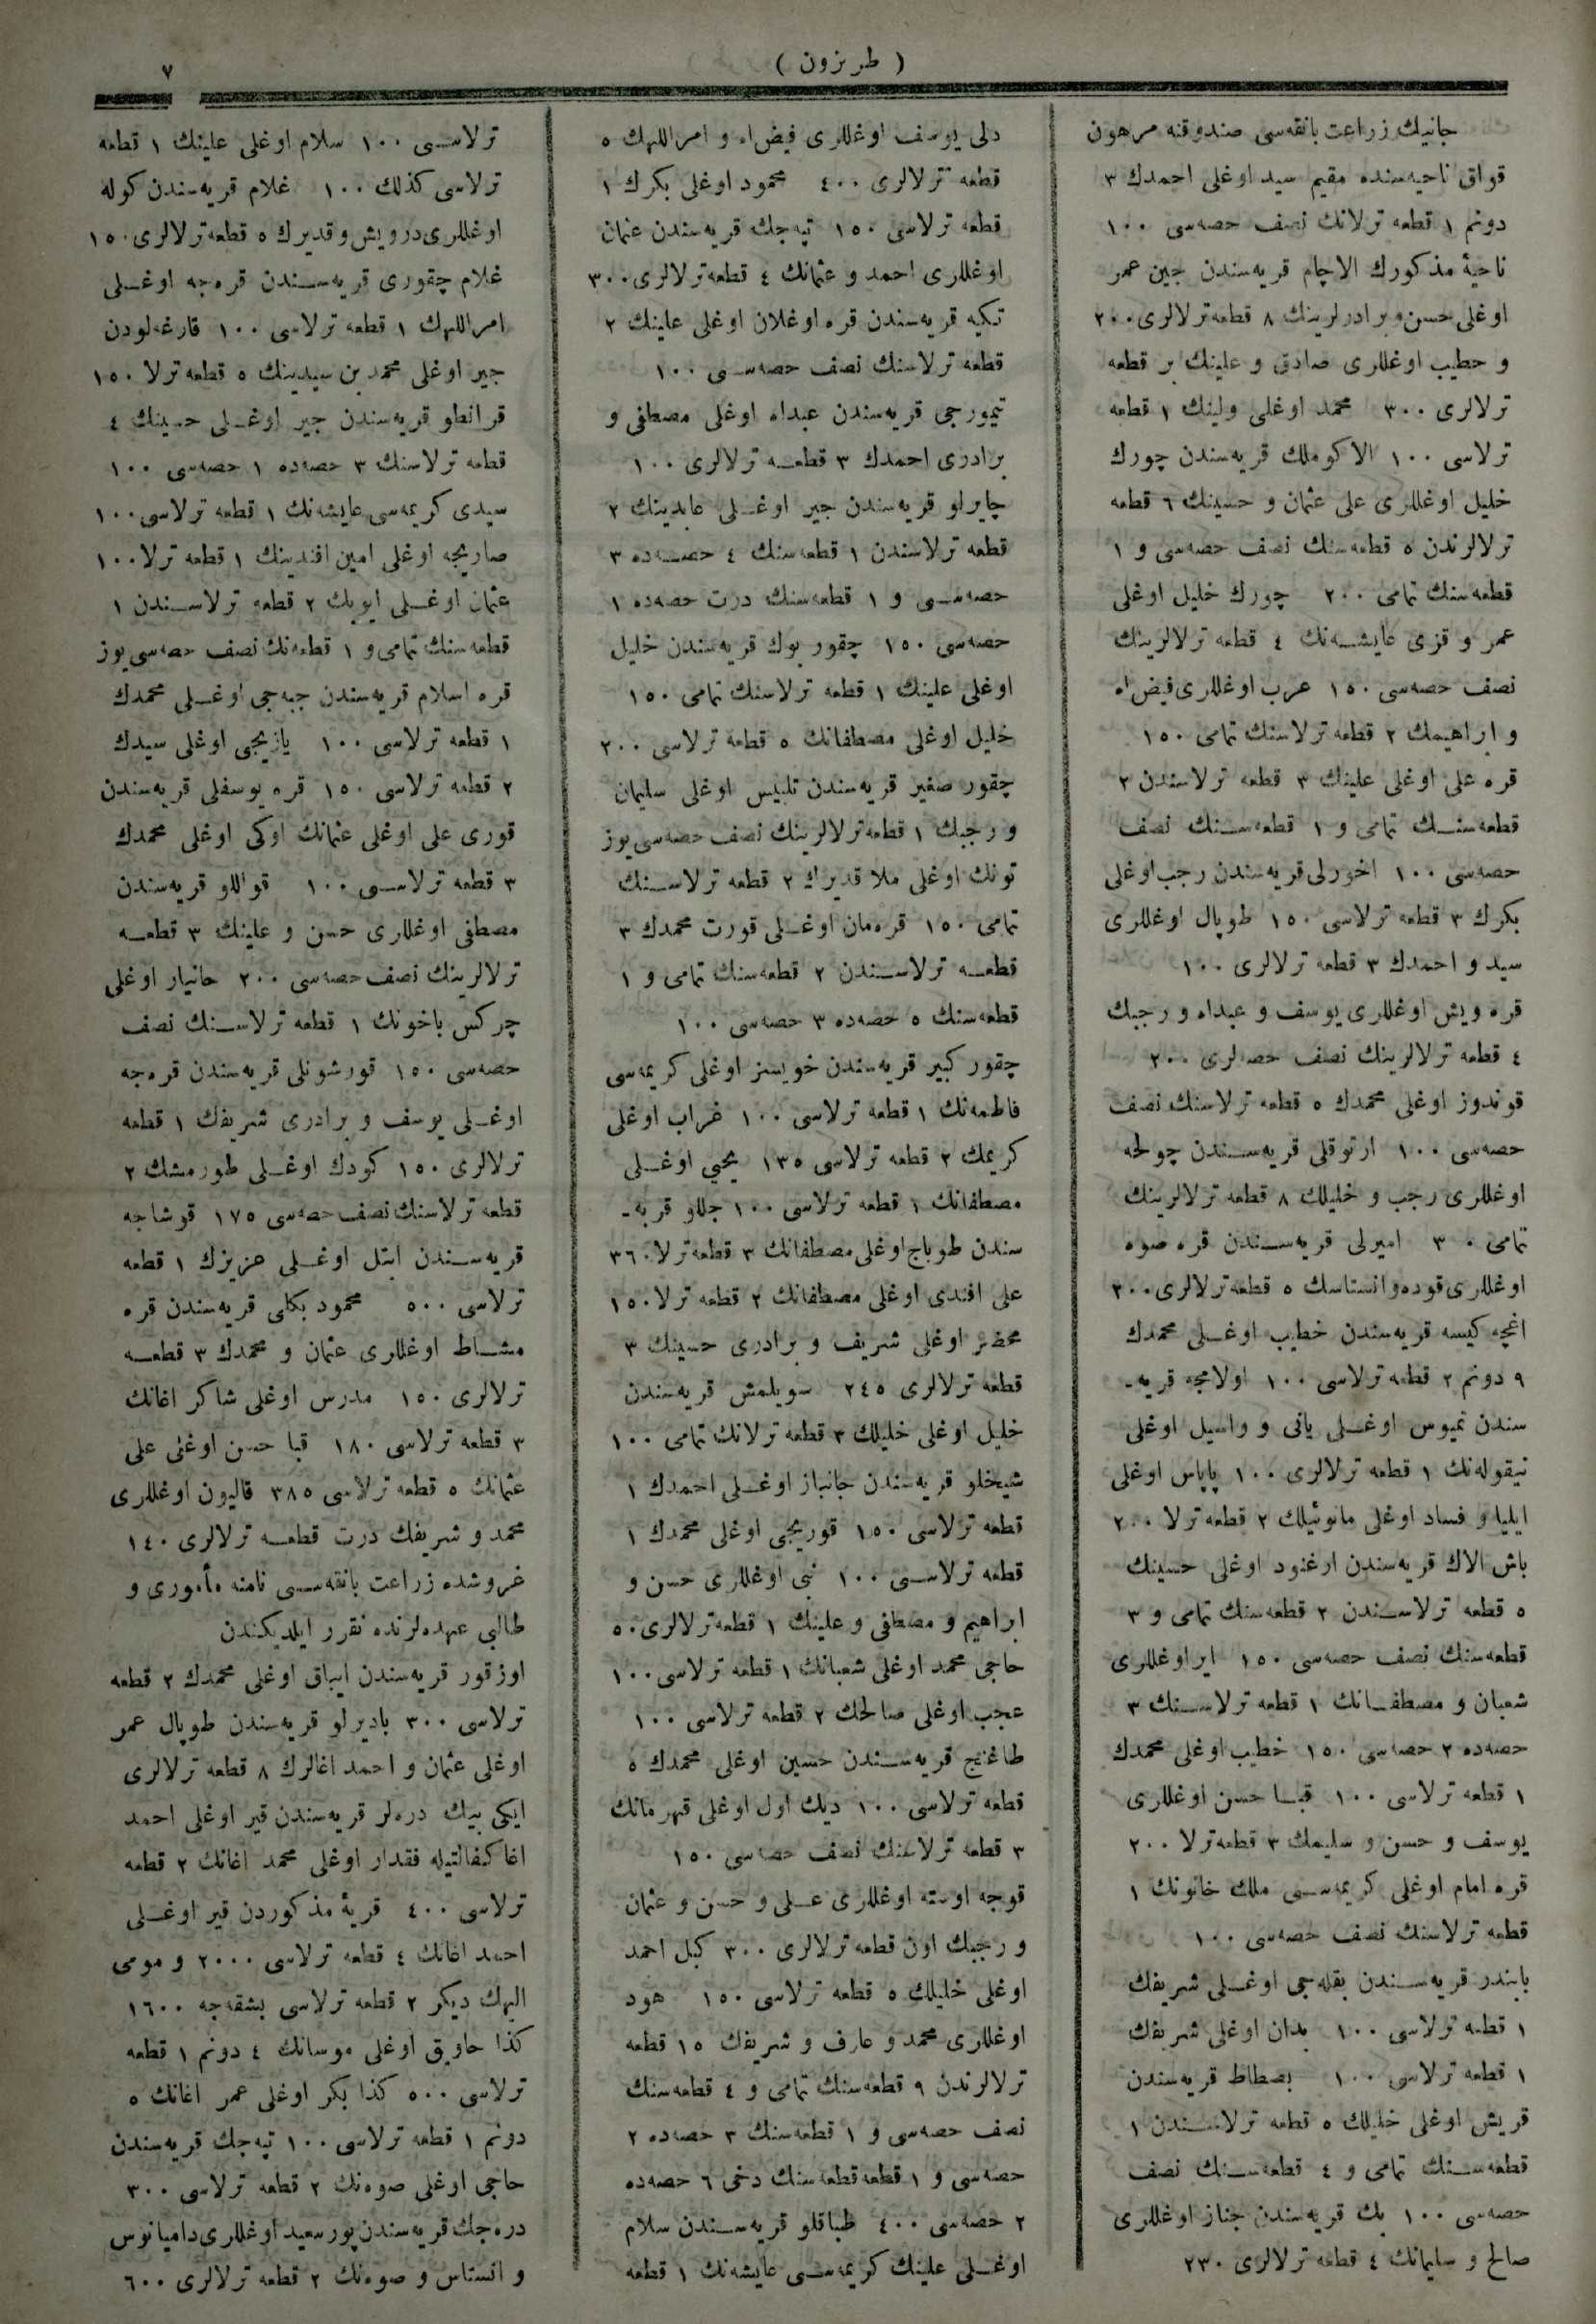 ( طربزون )
٧
جانيك زراعت بانقه‌سى صندوقنه مرهون
قواق ناحيه‌سنده مقيم سيد اوغلى احمدك ٣
دونم ١ قطعه ترلانك نصف حصه‌سى ١٠٠
ناحيهٔ مذكورك الاچام قريه‌سندن جين عمر
اوغلى حسن و برادرلرينك ٨ قطعه ترلالرى ٢٠٠
و حطيب اوغللرى صادق و علينك بر قطعه
ترلالرى ٣٠٠ محمد اوغلى ولينك ١ قطعه
ترلاسى ١٠٠ الاكوملك قريه‌سندن چورك
خليل اوغللرى على عثمان و حسينك ٦ قطعه
ترلالرندن ٥ قطعه‌سنك نصف حصه‌سى و ١
قطعه‌سنك تمامى ٢٠٠ چورك خليل اوغلى
عمر و قزى عايشه‌نك ٤ قطعه ترلالرينك
نصف حصه‌سى ١٥٠ عرب اوغللرى فيض‌اﷲ
و ابراهيمك ٢ قطعه ترلاسنك تمامى ١٥٠
قره على اوغلى علينك ٣ قطعه ترلاسندن ٢
قطعه‌سنك تمامى و ١ قطعه‌سنك نصف
حصه‌سى ١٠٠ اخورلى قريه‌سندن رجب اوغلى
بكرك ٣ قطعه ترلاسى ١٥٠ طوپال اوغللرى
سيد و احمدك ٣ قطعه ترلالرى ١٠٠
قره ويش اوغللرى يوسف و عبداﷲ و رجبك
٤ قطعه ترلالرينك نصف حصه‌لرى ٢٠٠
قوندوز اوغلى محمدك ٥ قطعه ترلاسنك نصف
حصه‌سى ١٠٠ ارتوقلى قريه‌سندن چولحه
اوغللرى رجب و خليلك ٨ قطعه ترلالرينك
تمامى ٣٠ اميرلى قريه‌سندن قره صوه
اوغللرى قوده و انستاسك ٥ قطعه ترلالرى ٣٠٠
اغچه كيسه قريه‌سندن خطيب اوغلى محمدك
٩ دونم ٢ قطعه ترلاسى ١٠٠ اولامجه قريه‌ـ
سندن نميوس اوغلى يانى و واسيل اوغلى
نيقوله‌نك ١ قطعه ترلالرى ١٠٠ پاپاس اوغلى
ايليا و فساد اوغلى مانوئيلك ٢ قطعه ترلا ٢٠٠
باش الاك قريه‌سندن ارغنود اوغلى حسينك
٥ قطعه ترلاسندن ٢ قطعه‌سنك تمامى و ٣
قطعه‌سنك نصف حصه‌سى ١٥٠ اير اوغللرى
شعبان و مصطفانك ١ قطعه ترلاسنك ٣
حصه‌ده ٢ حصه‌سى ١٥٠ خطيب اوغلى محمدك
١ قطعه ترلاسى ١٠٠ قبا حسن اوغللرى
يوسف و حسن و سليمك ٣ قطعه ترلا ٢٠٠
قره امام اوغلى كريمه‌سى ملك خاتونك ١
قطعه ترلاسنك نصف حصه‌سى ١٠٠
بايندر قريه‌سندن بقله‌جى اوغلى شريفك
١ قطعه ترلاسى ١٠٠ بدان اوغلى شريفك
١ قطعه ترلاسى ١٠٠ بصطاط قريه‌سندن
قريش اوغلى خليلك ٥ قطعه ترلاسندن ١
قطعه‌سنك تمامى و ٤ قطعه‌سنك نصف
حصه‌سى ١٠٠ بك قريه‌سندن جناز اوغللرى
صالح و سليمانك ٤ قطعه ترلالرى ٢٣٠
دلى يوسف اوغللرى فيض‌اﷲ و امراللهك ٥
قطعه ترلالرى ٤٠٠ محمود اوغلى بكرك ١
قطعه ترلاسى ١٥٠ تپه‌جك قريه‌سندن عثمان
اوغللرى احمد و عثمانك ٤ قطعه ترلالرى ٣٠٠
تكيه قريه‌سندن قره اوغلان اوغلى علينك ٢
قطعه ترلاسنك نصف حصه‌سى ١٠٠
تيمورجى قريه‌سندن عبداﷲ اوغلى مصطفى و
برادرى احمدك ٣ قطعه ترلالرى ١٠٠
چايرلو قريه‌سندن جير اوغلى عابدينك ٢
قطعه ترلاسندن ١ قطعه‌سنك ٤ حصه‌ده ٣
حصه‌سى و ١ قطعه‌سنك درت حصه‌ده ١
حصه‌سى ١٥٠ چقور بوك قريه‌سندن خليل
اوغلى علينك ١ قطعه ترلاسنك تمامى ١٥٠
خليل اوغلى مصطفانك ٥ قطعه ترلاسى ٢٠٠
چقور صغير قريه‌سندن تلبيس اوغلى سليمان
و رجبك ١ قطعه ترلالرينك نصف حصه‌سى يوز
تونك اوغلى ملا قديرك ٢ قطعه ترلاسنك
تمامى ١٥٠ قره‌مان اوغلى قورت محمدك ٣
قطعه ترلاسندن ٢ قطعه‌سنك تمامى و ١
قطعه‌سنك ٥ حصه‌ده ٣ حصه‌سى ١٠٠
چقور كبير قريه‌سندن خويسز اوغلى كريمه‌سى
فاطمه‌نك ١ قطعه ترلاسى ١٠٠ غراب اوغلى
كريمك ٢ قطعه ترلاسى ١٣٥ يحيى اوغلى
مصطفانك ١ قطعه ترلاسى ١٠٠ جللو قريه‌ـ
سندن طوباج اوغلى مصطفانك ٣ قطعه ترلا ٣٦٠
على افندى اوغلى مصطفانك ٢ قطعه ترلا ١٥٠
محضر اوغلى شريف و برادرى حسينك ٣
قطعه ترلالرى ٢٤٥ سويلمش قريه‌سندن
خليل اوغلى خليلك ٣ قطعه ترلانك تمامى ١٠٠
شيخلو قريه‌سندن جانباز اوغلى احمدك ١
قطعه ترلاسى ١٥٠ قوريجى اوغلى محمدك ١
قطعه ترلاسى ١٠٠ نبى اوغللرى حسن و
ابراهيم و مصطفى و علينك ١ قطعه ترلالرى ٥٠
حاجى محمد اوغلى شعبانك ١ قطعه ترلاسى ١٠٠
عجب اوغلى صالحك ٢ قطعه ترلاسى ١٠٠
طاغنج قريه‌سندن حسين اوغلى محمدك ٥
قطعه ترلاسى ١٠٠ ديك اول اوغلى قهرمانك
٣ قطعه ترلاسنك نصف حصه‌سى ١٥٠
قوجه اوسته اوغللرى على و حسن و عثمان
و رجبك اون قطعه ترلالرى ٣٠٠ كبل احمد
اوغلى خليلك ٥ قطعه ترلاسى ١٥٠ هود
اوغللرى محمد و عارف و شريفك ١٥ قطعه
ترلالرندن ٩ قطعه‌سنك تمامى و ٤ قطعه‌سنك
نصف حصه‌سى و ١ قطعه‌سنك ٣ حصه‌ده ٢
حصه‌سى و ١ قطعه قطعه‌سنك دخى ٦ حصه‌ده
٢ حصه‌سى ٤٠٠ طباقلو قريه‌سندن سلام
اوغلى علينك كريمه‌سى عايشه‌نك ١ قطعه
ترلاسى ١٠٠ سلام اوغلى علينك ١ قطعه
ترلاسى كذلك ١٠٠ غلام قريه‌سندن كوله
اوغللرى درويش و قديرك ٥ قطعه ترلالرى ١٥٠
غلام چقورى قريه‌سندن قره‌جه اوغلى
امراللهك ١ قطعه ترلاسى ١٠٠ قارغه‌لودن
جير اوغلى محمد بن سيدينك ٥ قطعه ترلا ١٥٠
قرانطو قريه‌سندن جير اوغلى حسينك ٤
قطعه ترلاسنك ٣ حصه‌ده ١ حصه‌سى ١٠٠
سيدى كريمه‌سى عايشه‌نك ١ قطعه ترلاسى ١٠٠
صاريجه اوغلى امين افندينك ١ قطعه ترلا ١٠٠
عثمان اوغلى ايوبك ٢ قطعه ترلاسندن ١
قطعه‌سنك تمامى و ١ قطعه‌نك نصف حصه‌سى يوز
قره اسلام قريه‌سندن جبه‌جى اوغلى محمدك
١ قطعه ترلاسى ١٠٠ يازيجى اوغلى سيدك
٢ قطعه ترلاسى ١٥٠ قره يوسفلى قريه‌سندن
قورى على اوغلى عثمانك اوكى اوغلى محمدك
٣ قطعه ترلاسى ١٠٠ قواللو قريه‌سندن
مصطفى اوغللارى حسن و علينك ٣ قطعه
ترلالرينك نصف حصه‌سى ٢٠٠ حانيار اوغلى
چركس باخونك ١ قطعه ترلاسنك نصف
حصه‌سى ١٥٠ قورشونلى قريه‌سندن قره‌جه
اوغلى يوسف و برادرى شريفك ١ قطعه
ترلالرى ١٥٠ كودك اوغلى طورمشك ٢
قطعه ترلاسنك نصف حصه‌سى ١٧٥ قوشاجه
قريه‌سندن ابتل اوغلى عزيزك ١ قطعه
ترلاسى ٥٠٠ محمود بكلى قريه‌سندن قره
مشاط اوغللارى عثمان و محمدك ٣ قطعه
ترلالرى ١٥٠ مدرس اوغلى شاكر اغانك
٣ قطعه ترلاسى ١٨٠ قبا حسن اوغلى على
عثمانك ٥ قطعه ترلاسى ٣٨٥ قاليون اوغللرى
محمد و شريفك درت قطعه ترلالرى ١٤٠
غروشده زراعت بانقه‌سى نامنه مأمورى و
طالبى عهده‌لرنده تقرر ايلديكندن
اوزقور قريه‌سندن ايباق اوغلى محمدك ٢ قطعه
ترلاسى ٣٠٠ باديرلو قريه‌سندن طوپال عمر
اوغلى عثمان و احمد اغالرك ٨ قطعه ترلالرى
ايكى بيك دره‌لر قريه‌سندن قير اوغلى احمد
اغا كفالتيله فقدار اوغلى محمد اغانك ٢ قطعه
ترلاسى ٤٠٠ قريهٔ مذكوردن قير اوغلى
احمد اغانك ٤ قطعه ترلاسى ٢٠٠٠ و مومى
اليهك ديكر ٢ قطعه ترلاسى بشقه‌جه ١٦٠٠
كذا حاويق اوغلى موسانك ٤ دونم ١ قطعه
ترلاسى ٥٠٠ كذا بكر اوغلى عمر اغانك ٥
دونم ١ قطعه ترلاسى ١٠٠ تپه‌جك قريه‌سندن
حاجى اوغلى صوه‌نك ٢ قطعه ترلاسى ٣٠٠
دره‌جك قريه‌سندن پورسعيد اوغللرى داميانوس
و انستاس و صوه‌نك ٢ قطعه ترلالرى ٦٠٠